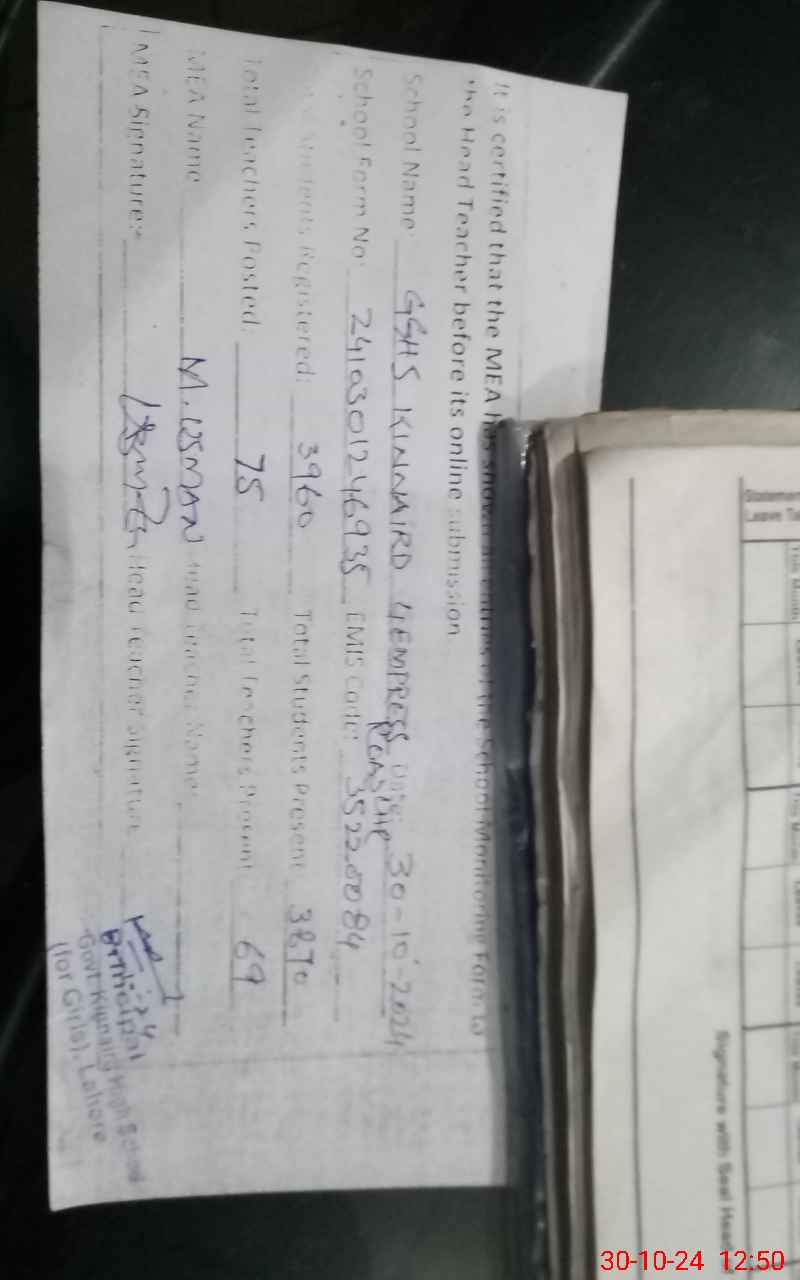 It is certified that the MEA has shown all entries of the School Monitoring Form to
the Head Teacher before its online submission.
School Name: GGHS KINNAIRD 4 EMPRESS ROAD LHR Date: 30-10-2024
School Form No: 241030124 6935 EMIS Code: 35220084
Students Registered: 3960 Total Students Present 3870
Total Teachers Posted: 75 Total Teachers Present 69
MEA Name M. USMAN Head Teacher Name:
MEA Signature: Head Teacher Signature
Principal
Govt Kinnaird High School
(for Girls), Lahore
Statement
Leave
Signature with Seal Head
30-10-24 12:50